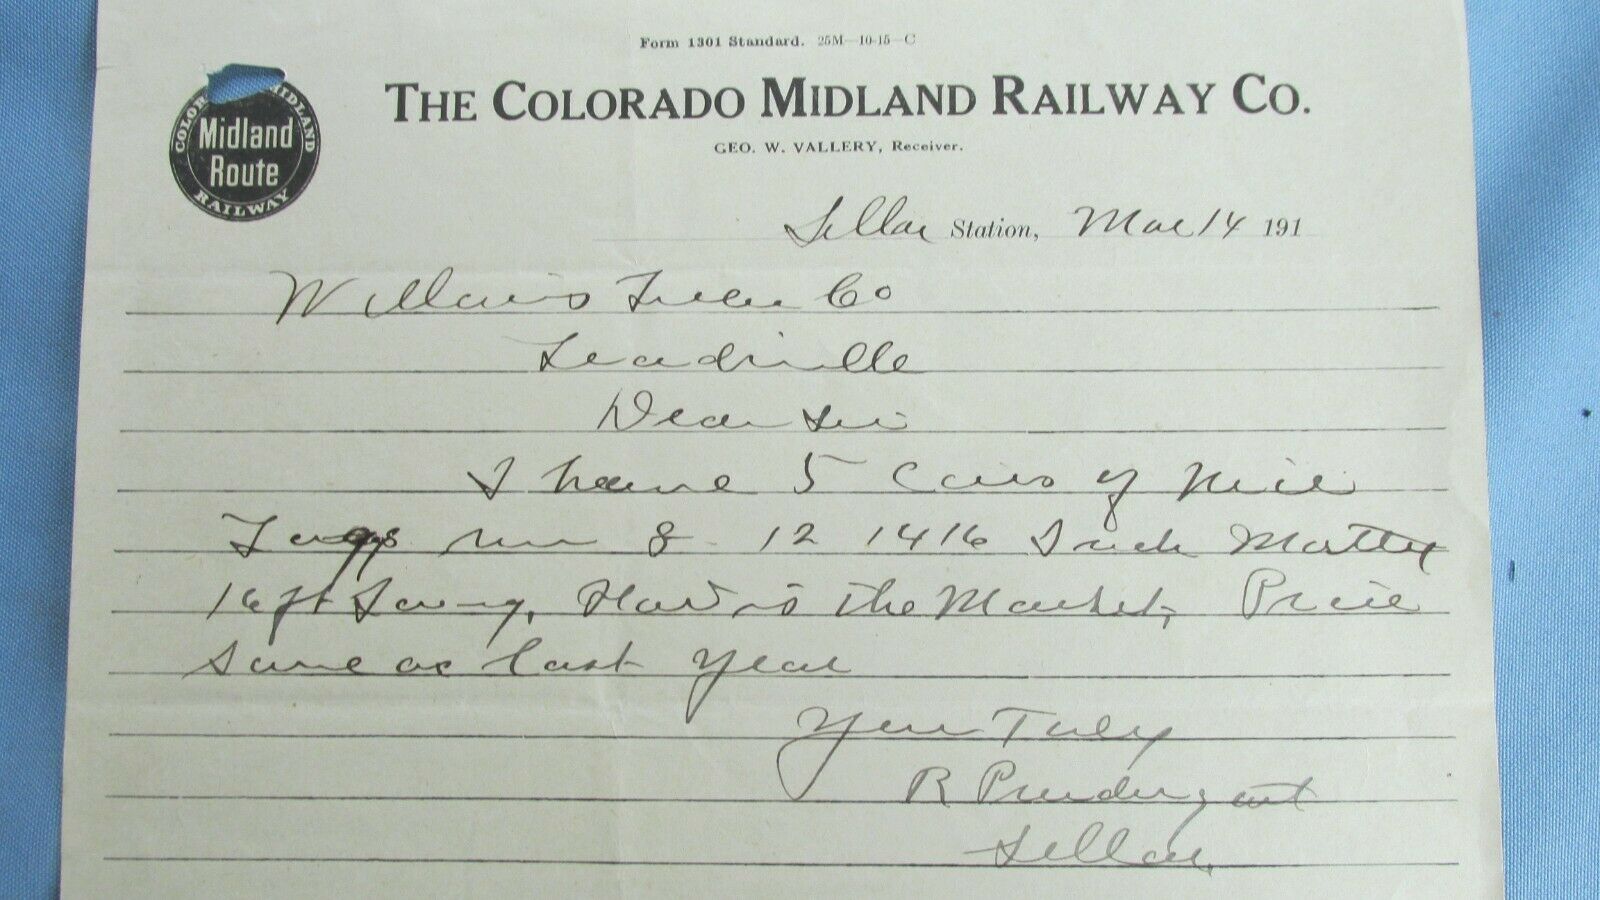 Form 1301 Standard. 25M—10-15—C
THE COLORADO MIDLAND RAILWAY CO.
GEO. W. VALLERY, Receiver.
COLOR MIDLAND
Midland
Route
RAILWAY
Sellar Station, Mar 14 191
Williams Co
Leadville
Dear Sir
I have 5 Cars of Nice
8 12 14 16 Inch Mostly
16 ft Long, How is the Market, Price
Same as last year
Your Truly
R Prendergast
Sellar